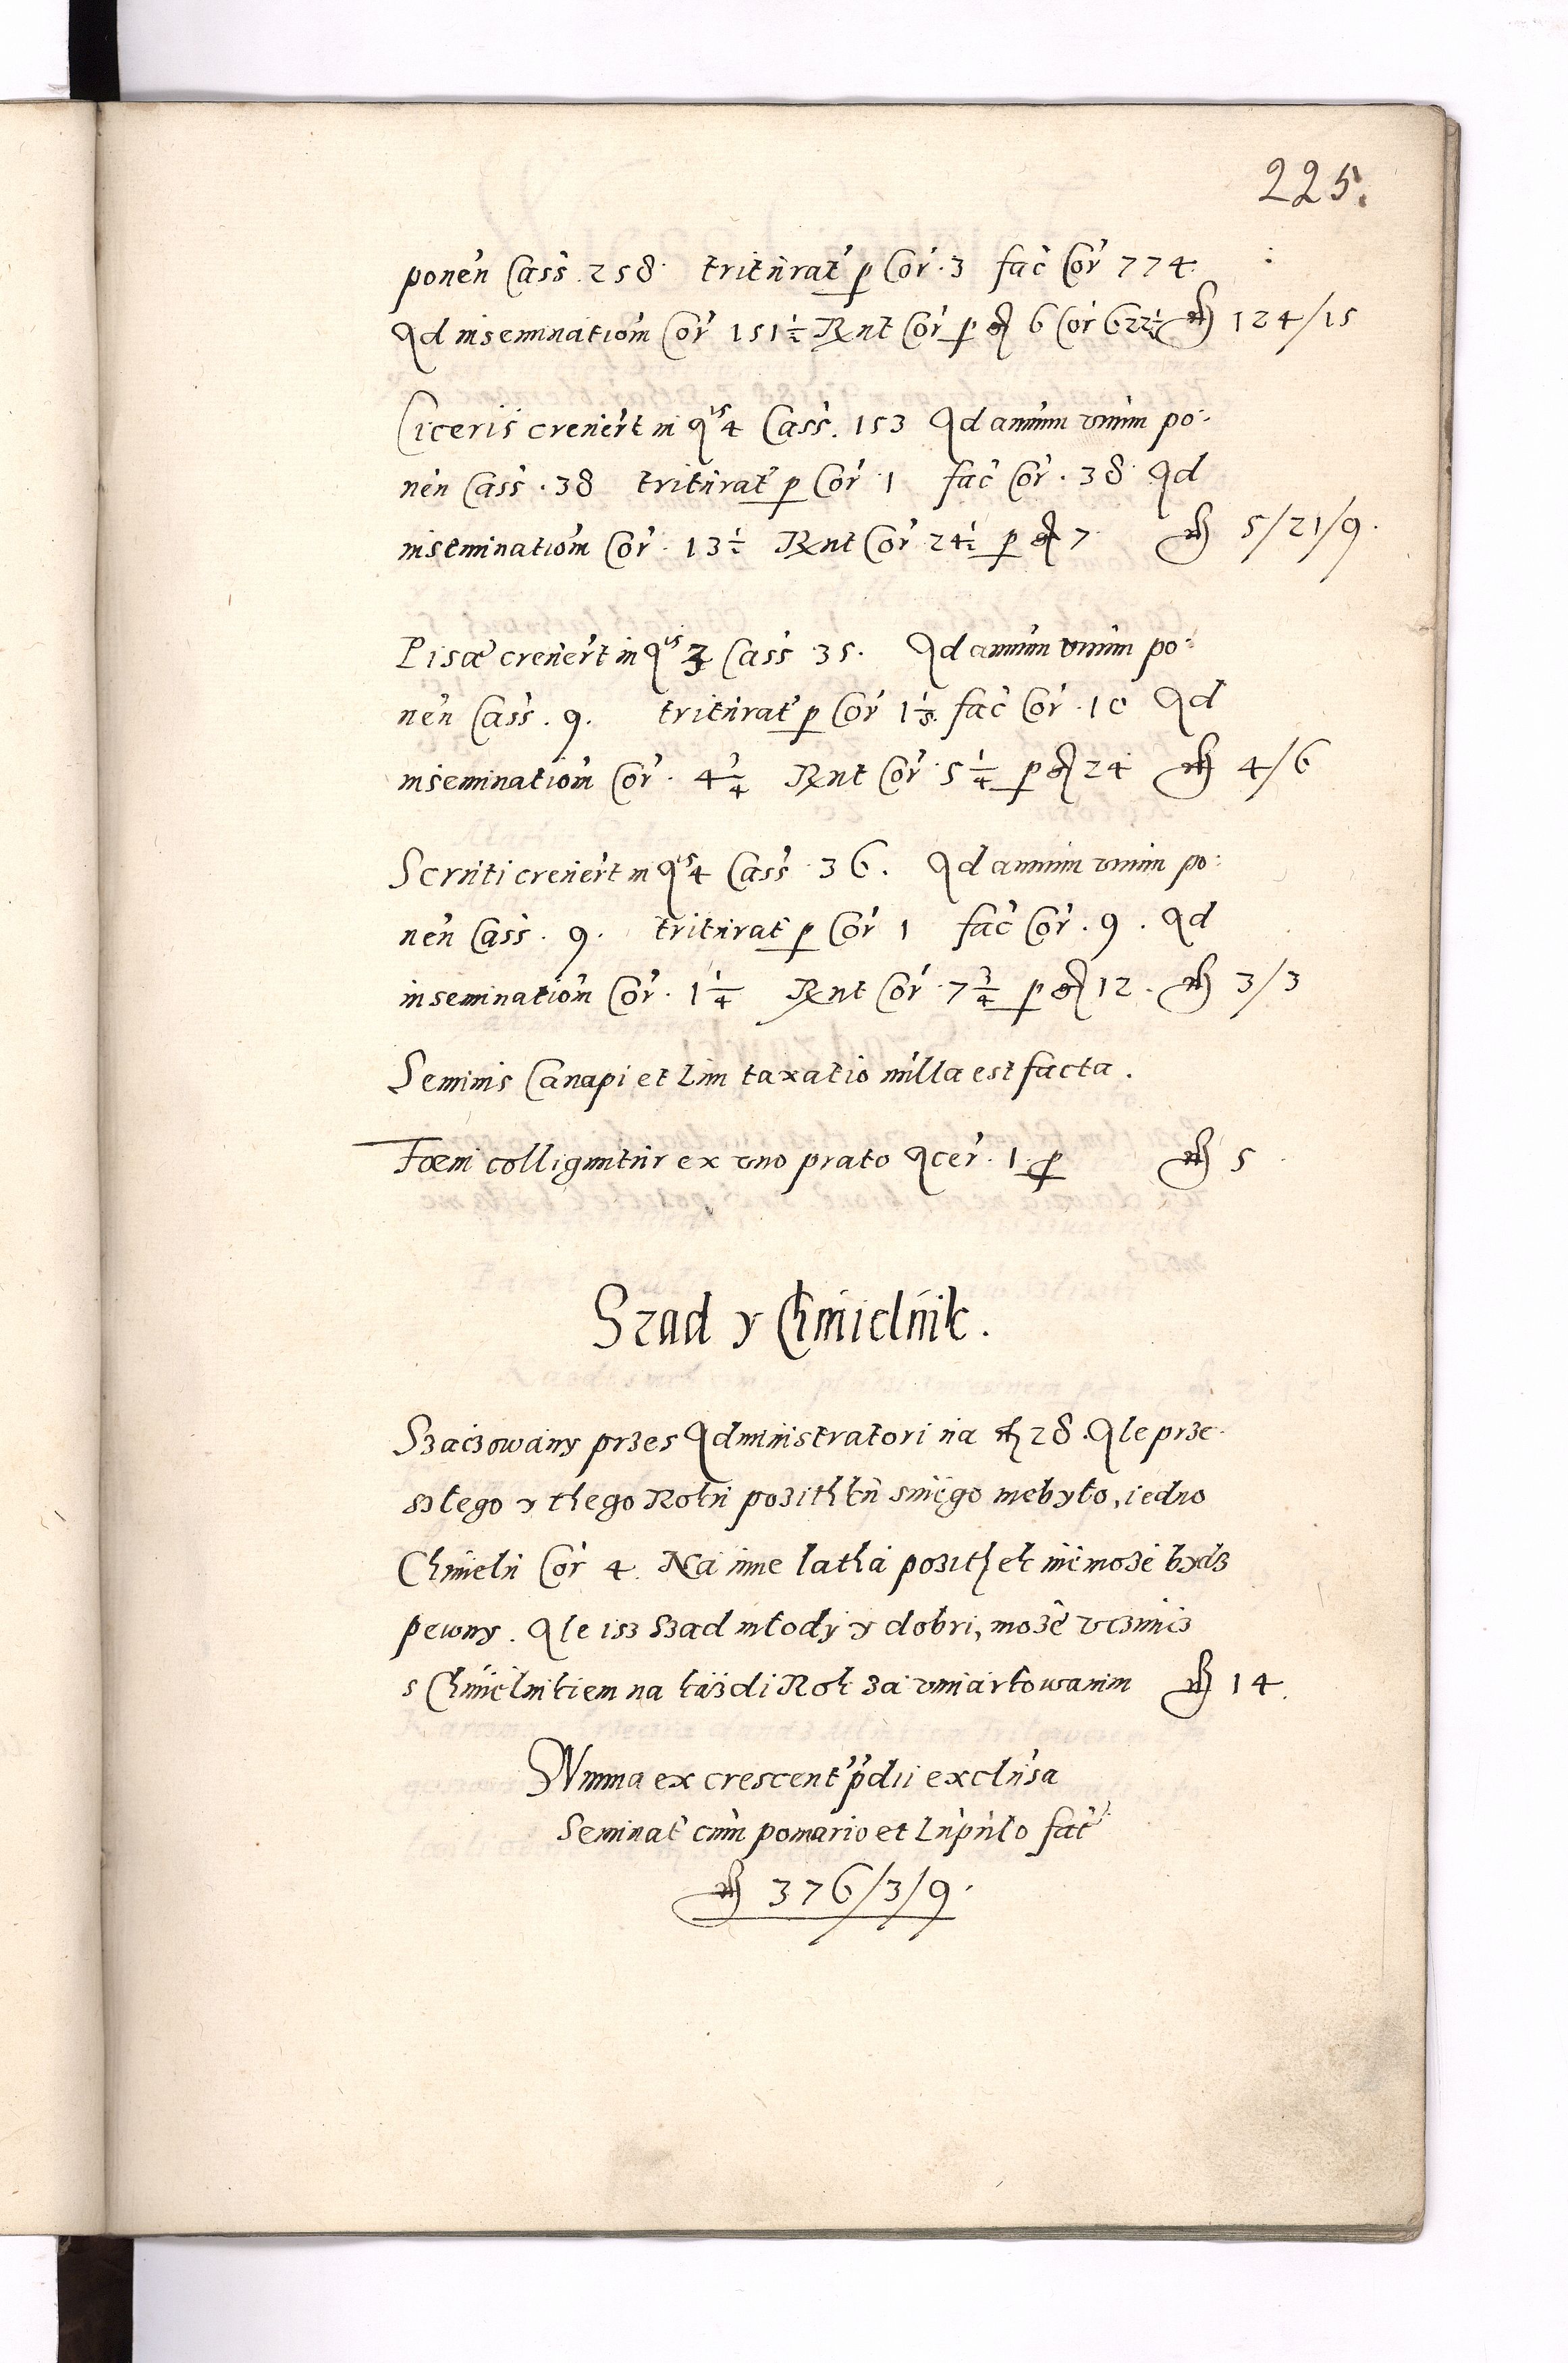 225.
ponen̄ Cass. 258. triturat̄ p Cor̄. 3 fac̄ Cor̄ 774.
Ad inseminatiom̄ Cor̄ 151½ Rnt Cor̄ p gr 6 Cor 622½ fl 124/15
Ciceris creuert in Aīs 4 Cass. 153 Ad annum vnum po:
nen̄ Cass. 38 triturat̄ p Cor̄ 1 fac̄ Cor̄. 38 Ad
inseminatiom̄ Cor̄. 13½ Rnt Cor̄ 24½ p gr 7 fl 5/21/9.
Pisæ creuert in Aīs 4 Cass 35. Ad annum vnum po:
nen̄ Cass. 9. triturat̄ p Cor̄ 1⅛ fac̄ Cor̄. 10 Ad
inseminatiom̄ Cor̄. 4¾ Rnt Cor̄ 5¼ p gr 24 fl 4/6
Scruti creuert in Aīs 4 Cass 36. Ad annum vnum po:
nen̄ Cass. 9. triturat̄ p Cor̄ 1 fac̄ Cor̄. 9. Ad
inseminatiom̄ Cor̄. 1¼ Rnt Cor̄ 7¾ p gr 12. fl 3/3
Seminis Canapi et Lini taxatio nulla est facta.
Foeni colliguntur ex vno prato Acer̄. 1. p fl 5
Szad y Chmielnik.
Szaczowany przes Administratori na fl 28. Ale prze
szłego y thego Roku pozithku sniego niebyło, iedno
Chmielu Cor̄ 4. Na inne latha pozithek niemoze bydz
pewny. Ale isz Szad młody y dobri, moze vczinicz
s Chmielnikiem na kazdi Rok za vmiarkowanim fl 14.
Summa ex crescent̄ p̄dii exclusa
Seminat̄ cum pomario et Lupulo fac̄
fl 376/3/9.